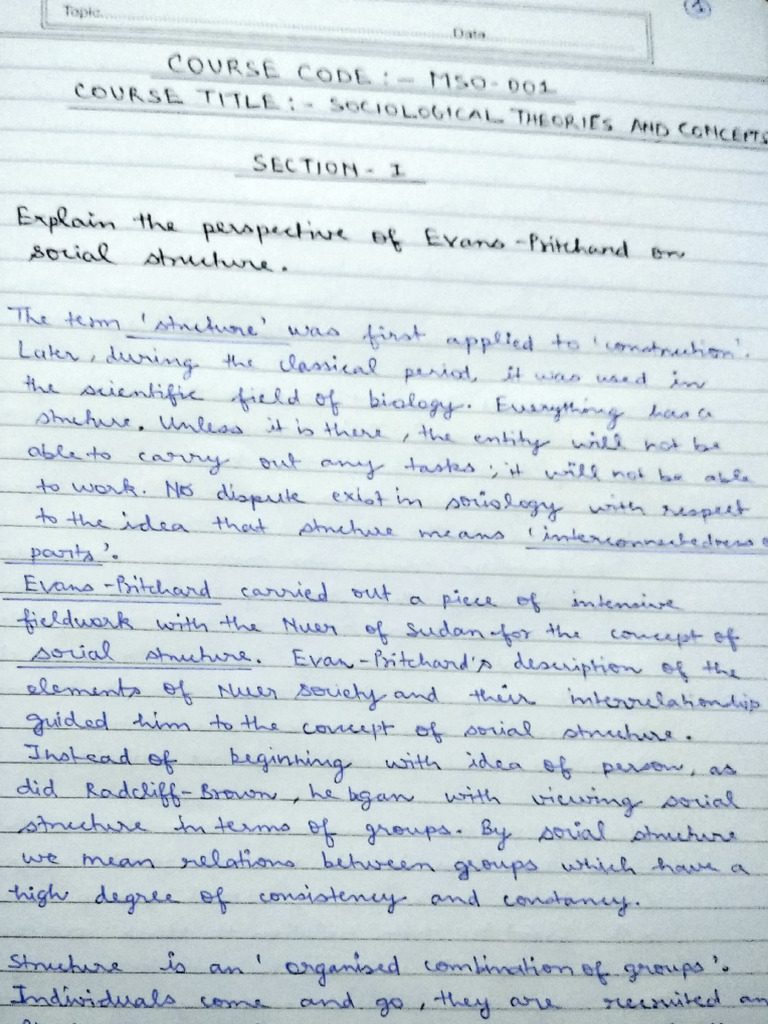 1
Topic
Date
COURSE CODE :- MSO-001
COURSE TITLE :- SOCIOLOGICAL THEORIES AND CONCEPTS
SECTION - I
Explain the perspective of Evans-Pritchard on
social structure.
The term 'structure' was first applied to 'construction'.
Later, during the classical period, it was used in
the scientific field of biology. Everything has a
structure. Unless it is there, the entity will not be
able to carry out any tasks; it will not be able
to work. No dispute exist in sociology with respect
to the idea that structure means 'interconnectedness o
parts'.
Evans-Pritchard carried out a piece of intensive
fieldwork with the Nuer of Sudan for the concept of
social structure. Evan-Pritchard's description of the
elements of Nuer society and their interrelationship
guided him to the concept of social structure.
Instead of beginning with idea of person, as
did Radcliff-Brown, he bgan with viewing social
structure in terms of groups. By social structure
we mean relations between groups which have a
high degree of consistency and constancy.
Structure is an 'organised combination of groups'.
Individuals come and go, they are recruited an